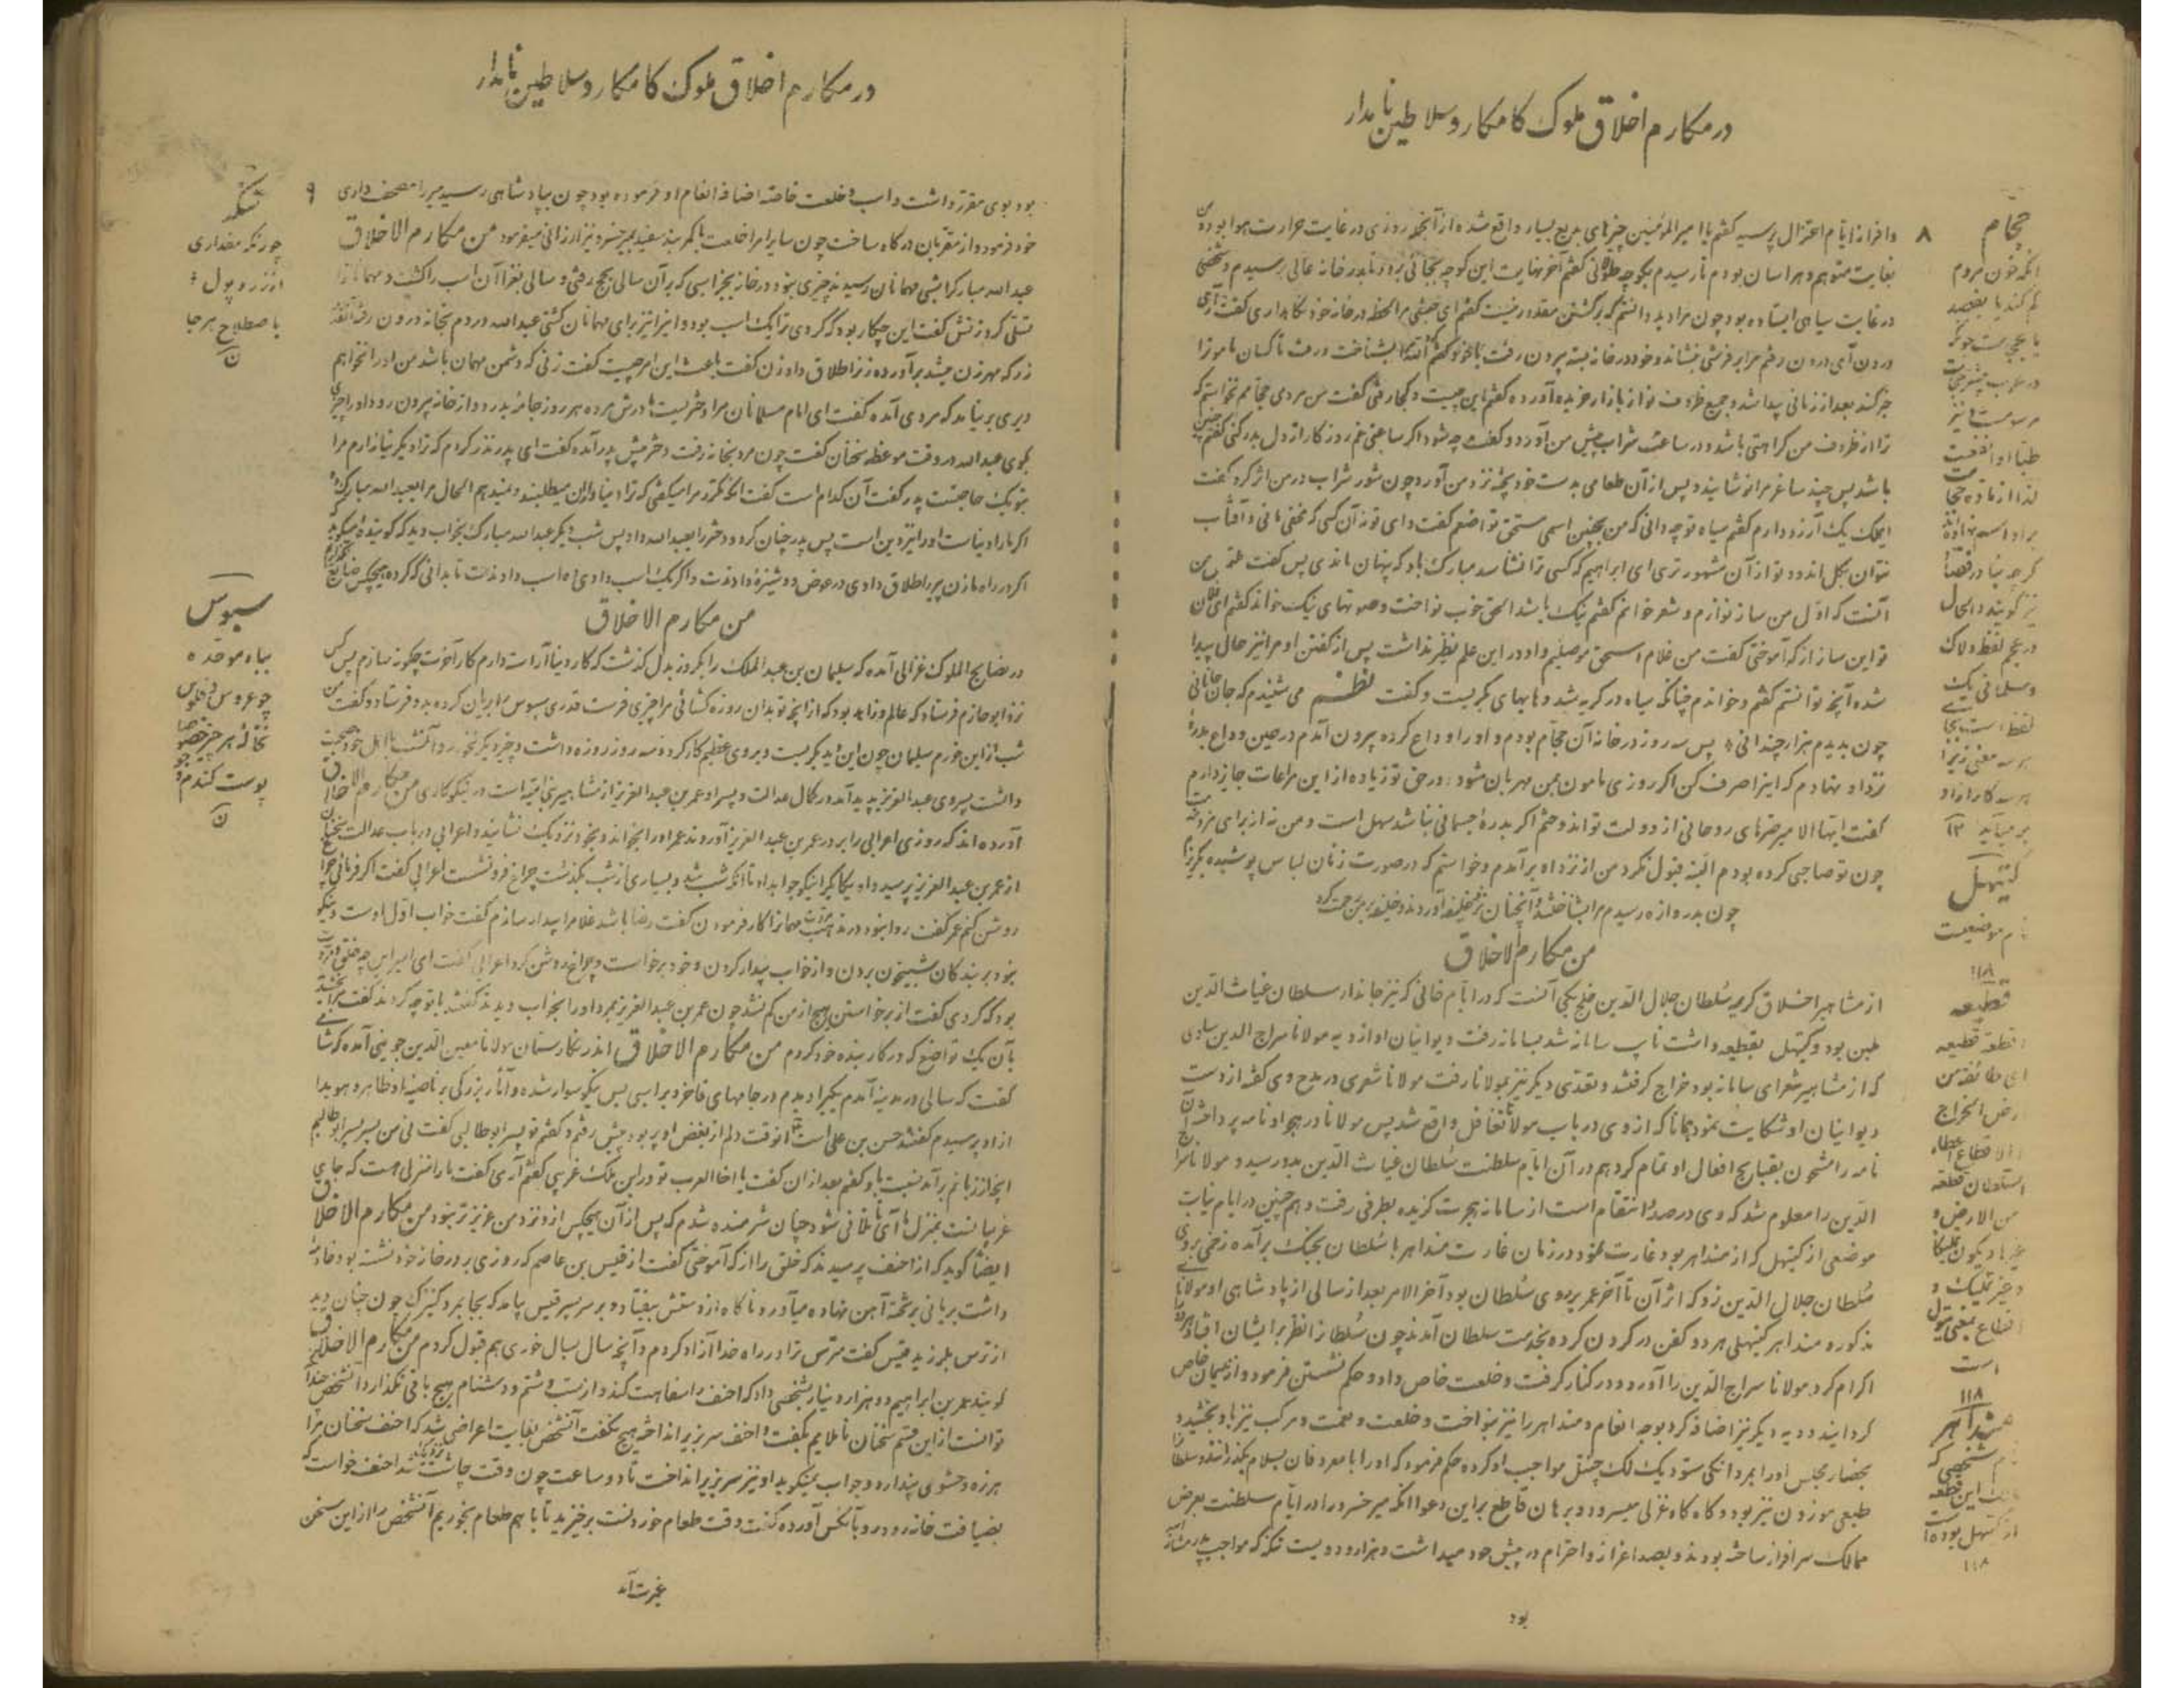 در مکارم اخلاق ملوک کامکار و سلاطین نامدار
۸
وافراز ایام اعتزال پرسید گفتم یا امیرالمؤمنین چیزهای بدیع بسیار واقع شده از آنجمله روزی در غایت حرارت هوا بود و من
بغایت متوهم و هراسان بودم تا رسیدم بکوچه طولانی گفتم آخر نهایت این کوچه بجائی برود تا بدر خانه عالی رسیدم و شخصی
در غایت سیاهی ایستاده بود چون مرا دید دانستم که برگشتن مقدور نیست گفتم ای حبشی مرا لحظه در خانه خود نگاه داری گفت آری
درون آی درون رفتم مرا بر فرشی نشاند و خود در خانه بسته بیرون رفت با خود گفتم بشناخت و رفت تا کسان مامون را
خبر کند بعد از زمانی پیدا شد و جمیع ظروف نو از بازار خریده آورده گفتم این چیست و کجا رفتی گفت من مردی حجامم نخواستم که
ترا از ظروف من کراهتی باشد و در ساعت شراب پیش من آورد و گفت چه شود اگر ساعتی غم روزگار از دل بدر کنی گفتم چنین
باشد پس چند ساغر مرا نوشانید و پس از آن طعامی بدست خود پخته نزد من آورد و چون شور شراب در من اثر کرد گفت
ایملک یک آرزو دارم گفتم سیاه تو چه دانی که من بچنین اسمی مستحق تواضع گفت وای تو نه آن کسی که مخفی مانی و آفتاب
نتوان بگل اندود تو از آن مشهورتری ای ابراهیم که کسی ترا نشناسد مبارک باد که پنهان ماندی پس گفت ملتمس من
آنست که اول من ساز نوازم و شعر خوانم گفتم نیک باشد الحق خوب نواخت و صوتهای نیک خواند گفتم ای فلان
تو این ساز از که آموختی گفت من غلام اسحق موصلیم و او در این علم نظیر نداشت پس از گفتن او مرا نیز حالی پیدا
شده آنچه توانستم گفتم و خواندم چنانکه سیاه در گریه شد و هایهای بگریست و گفت نظم می شنیدم که جان جانانی
چون بدیدم هزار چندانی پس سه روز در خانه آن حجام بودم و او را وداع کرده بیرون آمدم در حین وداع بدره
نزد او نهادم که اینرا صرف کن اگر روزی مامون بمن مهربان شود در حق تو زیاده از این مراعات جایز دارم
گفت ایها الامیر حقهای روحانی از دولت تو اندوختم اگر بدره جسمانی نباشد سهل است و من نه از برای مزد خدمت
چون تو صاحبی کرده بودم البته قبول نکرد من از نزد او برآمدم و خواستم که در صورت زنان لباس پوشیده بگریزم
چون بدروازه رسیدم مرا بشناختند و آنچنان نزد خلیفه آوردند و خلیفه بر من رحمت کرد
من مکارم الاخلاق
از مشاهیر اخلاق کریمه سلطان جلال الدین خلجی یکی آنست که در ایام خانی که نیز جاندار سلطان غیاث الدین
بلبن بود و کیتهل بقطیعه داشت نایب سامانه شد بسامانه رفت دیوانیان او از دیه مولانا سراج الدین ساوی
که از مشاهیر شعرای سامانه بود خراج گرفتند و تقدی دیگر نیز بمولانا رفت مولانا شعری در مدح وی گفته از دست
دیوانیان او شکایت نمود همانا که از وی در باب مولانا تغافل واقع شد پس مولانا در هجو او نامه پرداخته آن
نامه را مشحون بقبایح افعال او تمام کرد هم در آن ایام سلطنت سلطان غیاث الدین بدو رسید و مولانا سراج
الدین را معلوم شد که وی در صدد انتقام است از سامانه هجرت گزیده بطرفی رفت و هم چنین در ایام نیابت
موضعی از کیتهل که از منداهر بود غارت نمود و در زمان غارت منداهر با سلطان بجنگ برآمده زخمی بروی
سلطان جلال الدین زد که اثر آن تا آخر عمر بر روی سلطان بود آخر الامر بعد از سالی از پادشاهی او مولانای
مذکور و منداهر کیتهلی هر دو کفن در گردن کرده بخدمت سلطان آمدند چون سلطان را نظر بر ایشان افتاد هر دو را
اکرام کرد مولانا سراج الدین را آورد و در کنار گرفت و خلعت خاص داد و حکم نشستن فرمود و از ندیمان خاص
گردانیده و دیه دیگر نیز اضافه کرد بوجه انعام و منداهر را نیز بنواخت و خلعت و نعمت و مرکب نیز باو بخشیده
بحضار مجلس او را بمردانگی ستود یک لک چیتل مواجب او کرده حکم فرمود که او را با معروفان بسلام بگذرانند و سلطان را
طبعی موزون نیز بود و گاه گاه غزلی میسرود و برهان قاطع بر این دعوا آنکه میر خسرو را در ایام سلطنت بعرض
ممالک سرافراز ساخته بودند و بصد اعزاز و احترام در پیش خود میداشت و هزار و دویست تنکه که مواجب پدرش
بود
حجام
آنکه خون مردم
کم کند یا بقصد
کیتهل
نام موضعیست
۱۱۸
قطیعه
اقطعه قطیعه
ای طائفه من
ارض الخراج
من الارض و
است
۱۱۸
منداهر
نام شخصی که
مالک این قطعه
از کیتهل بوده است
۱۱۸
در مکارم اخلاق ملوک کامکار و سلاطین نامدار
۹
بود بوی مقرر داشت و اسب و خلعت خاصه اضافه انعام او فرموده بود چون بپادشاهی رسید میر را مصحف داری
خود فرمود و از مقربان درگاه ساخت چون سایر امرا خلعت با کمربند سفید بمیر خسرو نیز ارزانی میفرمود من مکارم الاخلاق
عبدالله مبارک را شبی مهمانان رسیدند چیزی نبود در خانه بجز اسبی که بر آن سالی بحج رفتی و سالی بغزا آن اسب را کشت و مهمانان را
تسلی کرد زنش گفت این چه کار بود که کردی ترا یک اسب بود و اینرا نیز برای مهمانان کشتی عبدالله در دم بخانه درون رفته آنقدر
زر که مهر زن میشد برآورده زن را طلاق داد زن گفت باعث این امر چیست گفت زنی که دشمن مهمان باشد من او را نخواهم
دیری بر نیامد که مردی آمده گفت ای امام مسلمانان مرا دختریست مادرش مرده هر روز جامه بدرد و از خانه بیرون رود او را چیزی
بگوی عبدالله در وقت موعظه سخنان گفت چون مرد بخانه رفت دختر پیش پدر آمده گفت ای پدر نذر کردم که ترا دیگر نیازارم مرا
بتو یک حاجتست پدر گفت آن کدام است گفت آنکه تو مرا میگفتی که ترا دنیا داران میطلبند و نمیدهم الحال مرا بعبدالله مبارک ده
اگر ما را دنیاست او را نیز دین است پس پدر چنان کرد و دختر را بعبدالله داد پس شب دیگر عبدالله مبارک بخواب دید که گوینده میگوید
اگر در راه ما زن پیر را طلاق دادی در عوض دوشیزه دادند و اگر یک اسب دادی ده اسب دادند تا بدانی که کرده هیچکس ضایع نگردد
من مکارم الاخلاق
در نصایح الملوک غزالی آمده که سلیمان بن عبدالملک را یکروز بدل گذشت که کار دنیا آراسته دارم کار آخرت چگونه سازم پس کس
نزد ابوحازم فرستاد که عالم و زاهد بود که از آنچه تو بدان روزه گشائی مرا چیزی فرست قدری سبوس بریان کرده بدو فرستاد و گفت من
شب از این خورم سلیمان چون این دید بگریست و بر وی عظیم کار کرده سه روز روزه داشت و چیز دیگر نخورد و آنشب با اهل خود صحبت
داشت پسر وی عبدالعزیز پدید آمد در کمال عدالت و پسر او عمر بن عبدالعزیز از مشاهیر بنی امیه است در نیکوکاری من مکارم الاخلاق
آورده اند که روزی اعرابی را بر در عمر بن عبدالعزیز آوردند عمر او را بخواند و بخود نزدیک نشانید و اعرابی در باب عدالت سخنان
از عمر بن عبدالعزیز پرسید و او یکایک را نیکو جواب داد تا آنکه شب شد و بسیاری از شب بگذشت چراغ فرو نشست اعرابی گفت اگر فرمائی چراغ
روشن کنم عمر گفت روا نبود در مذهب مروت مهمانرا کار فرمودن گفت رضا باشد غلام را بیدار سازم گفت خواب اول اوست و نیکو
نبود بر بندگان شبیخون بردن و از خواب بیدار کردن و خود برخاست و چراغ روشن کرد اعرابی گفت ای امیر این چه خلق و مروت
بود که کردی گفت از برخاستن هیچ از من کم نشد چون عمر بن عبدالعزیز بمرد او را بخواب دیدند گفتند با تو چه کردند گفت مرا بخشید
بآن یک تواضع که در کار بنده خود کردم من مکارم الاخلاق اندر نگارستان مولانا معین الدین جوینی آمده که شامی
گفت که سالی در مدینه آمدم یکیرا دیدم در جامهای فاخر و بر اسبی بس نیکو سوار شده و آثار بزرگی بر ناصیه او ظاهر و هویدا
از او پرسیدم گفتند حسن بن علی است آنوقت دلم از بغض او پر بود پیش رفتم و گفتم تو پسر ابوطالبی گفت نی من پسر پسر ابوطالبم
آنچه از زبانم برآمد نسبت باو گفتم بعد از آن گفت یا اخا العرب تو در این ملک غریبی گفتم آری گفت ما را منزلی هست که جای
غریبانست بمنزل ما آی تا تلافی شود چنان شرمنده شدم که پس از آن هیچکس از او نزد من عزیزتر نبود من مکارم الاخلاق
ایضا گوید که از احنف پرسیدند که خلق را از که آموختی گفت از قیس بن عاصم که روزی بر در خانه خود نشسته بود خادمه
داشت بریانی بر تخته آهن نهاده میآورد ناگاه از دستش بیفتاد و بر سر پسر قیس آمد که بجا بمرد کنیزک چون چنان دید
از ترس بلرزید قیس گفت مترس ترا در راه خدا آزاد کردم و آنچه سال بسال خوری هم قبول کردم من مکارم الاخلاق
گویند عمر بن ابراهیم دو هزار دینار بشخصی داد که احنف را سفاهت کند و از سب و شتم و دشنام هیچ باقی نگذارد آنشخص چندانکه
توانست از این قسم سخنان ناملایم بگفت و احنف سر بزیر انداخته هیچ نگفت آنشخص بغایت اعراضی شد که احنف سخنان مرا
هرزه و حشوی پندارد و جواب نمیگوید او نیز سر بزیر انداخت تا دو ساعت چون وقت چاشت نزدیک شد احنف خواست که
بضیافت خانه رود رو بآنکس آورده گفت وقت طعام خوردنست برخیزید تا با هم طعام بخوریم آنشخص را از این سخن
غیرت آمد
تنکه
چو زنکه مقداری
از زر و پول
باصطلاح هر جا
ن
سبوس
بباء موحده
چو عروس و فلوس
نخاله هر چیز خصوصا
پوست گندم و جو
ن